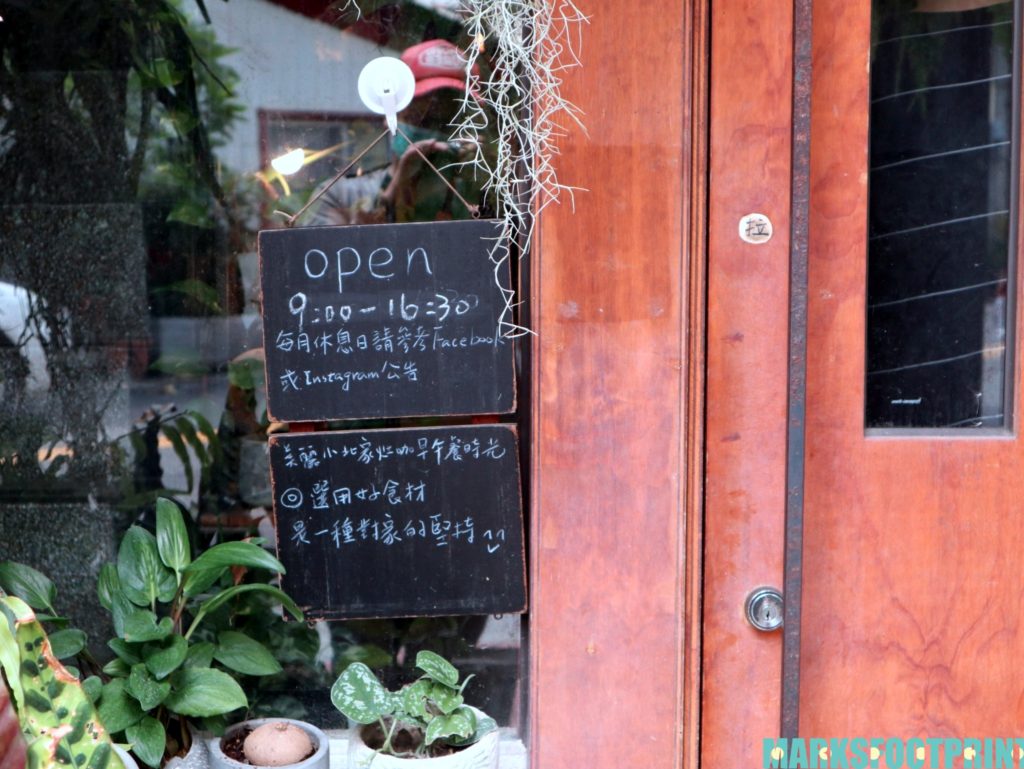 open
9:00-16:30
每月休息日請參考Facebook
或Instagram公告
美麗小北家灶咖早午餐時光
◎選用好食材
是一種對家的堅持
拉
MARKSFOOTPRINT